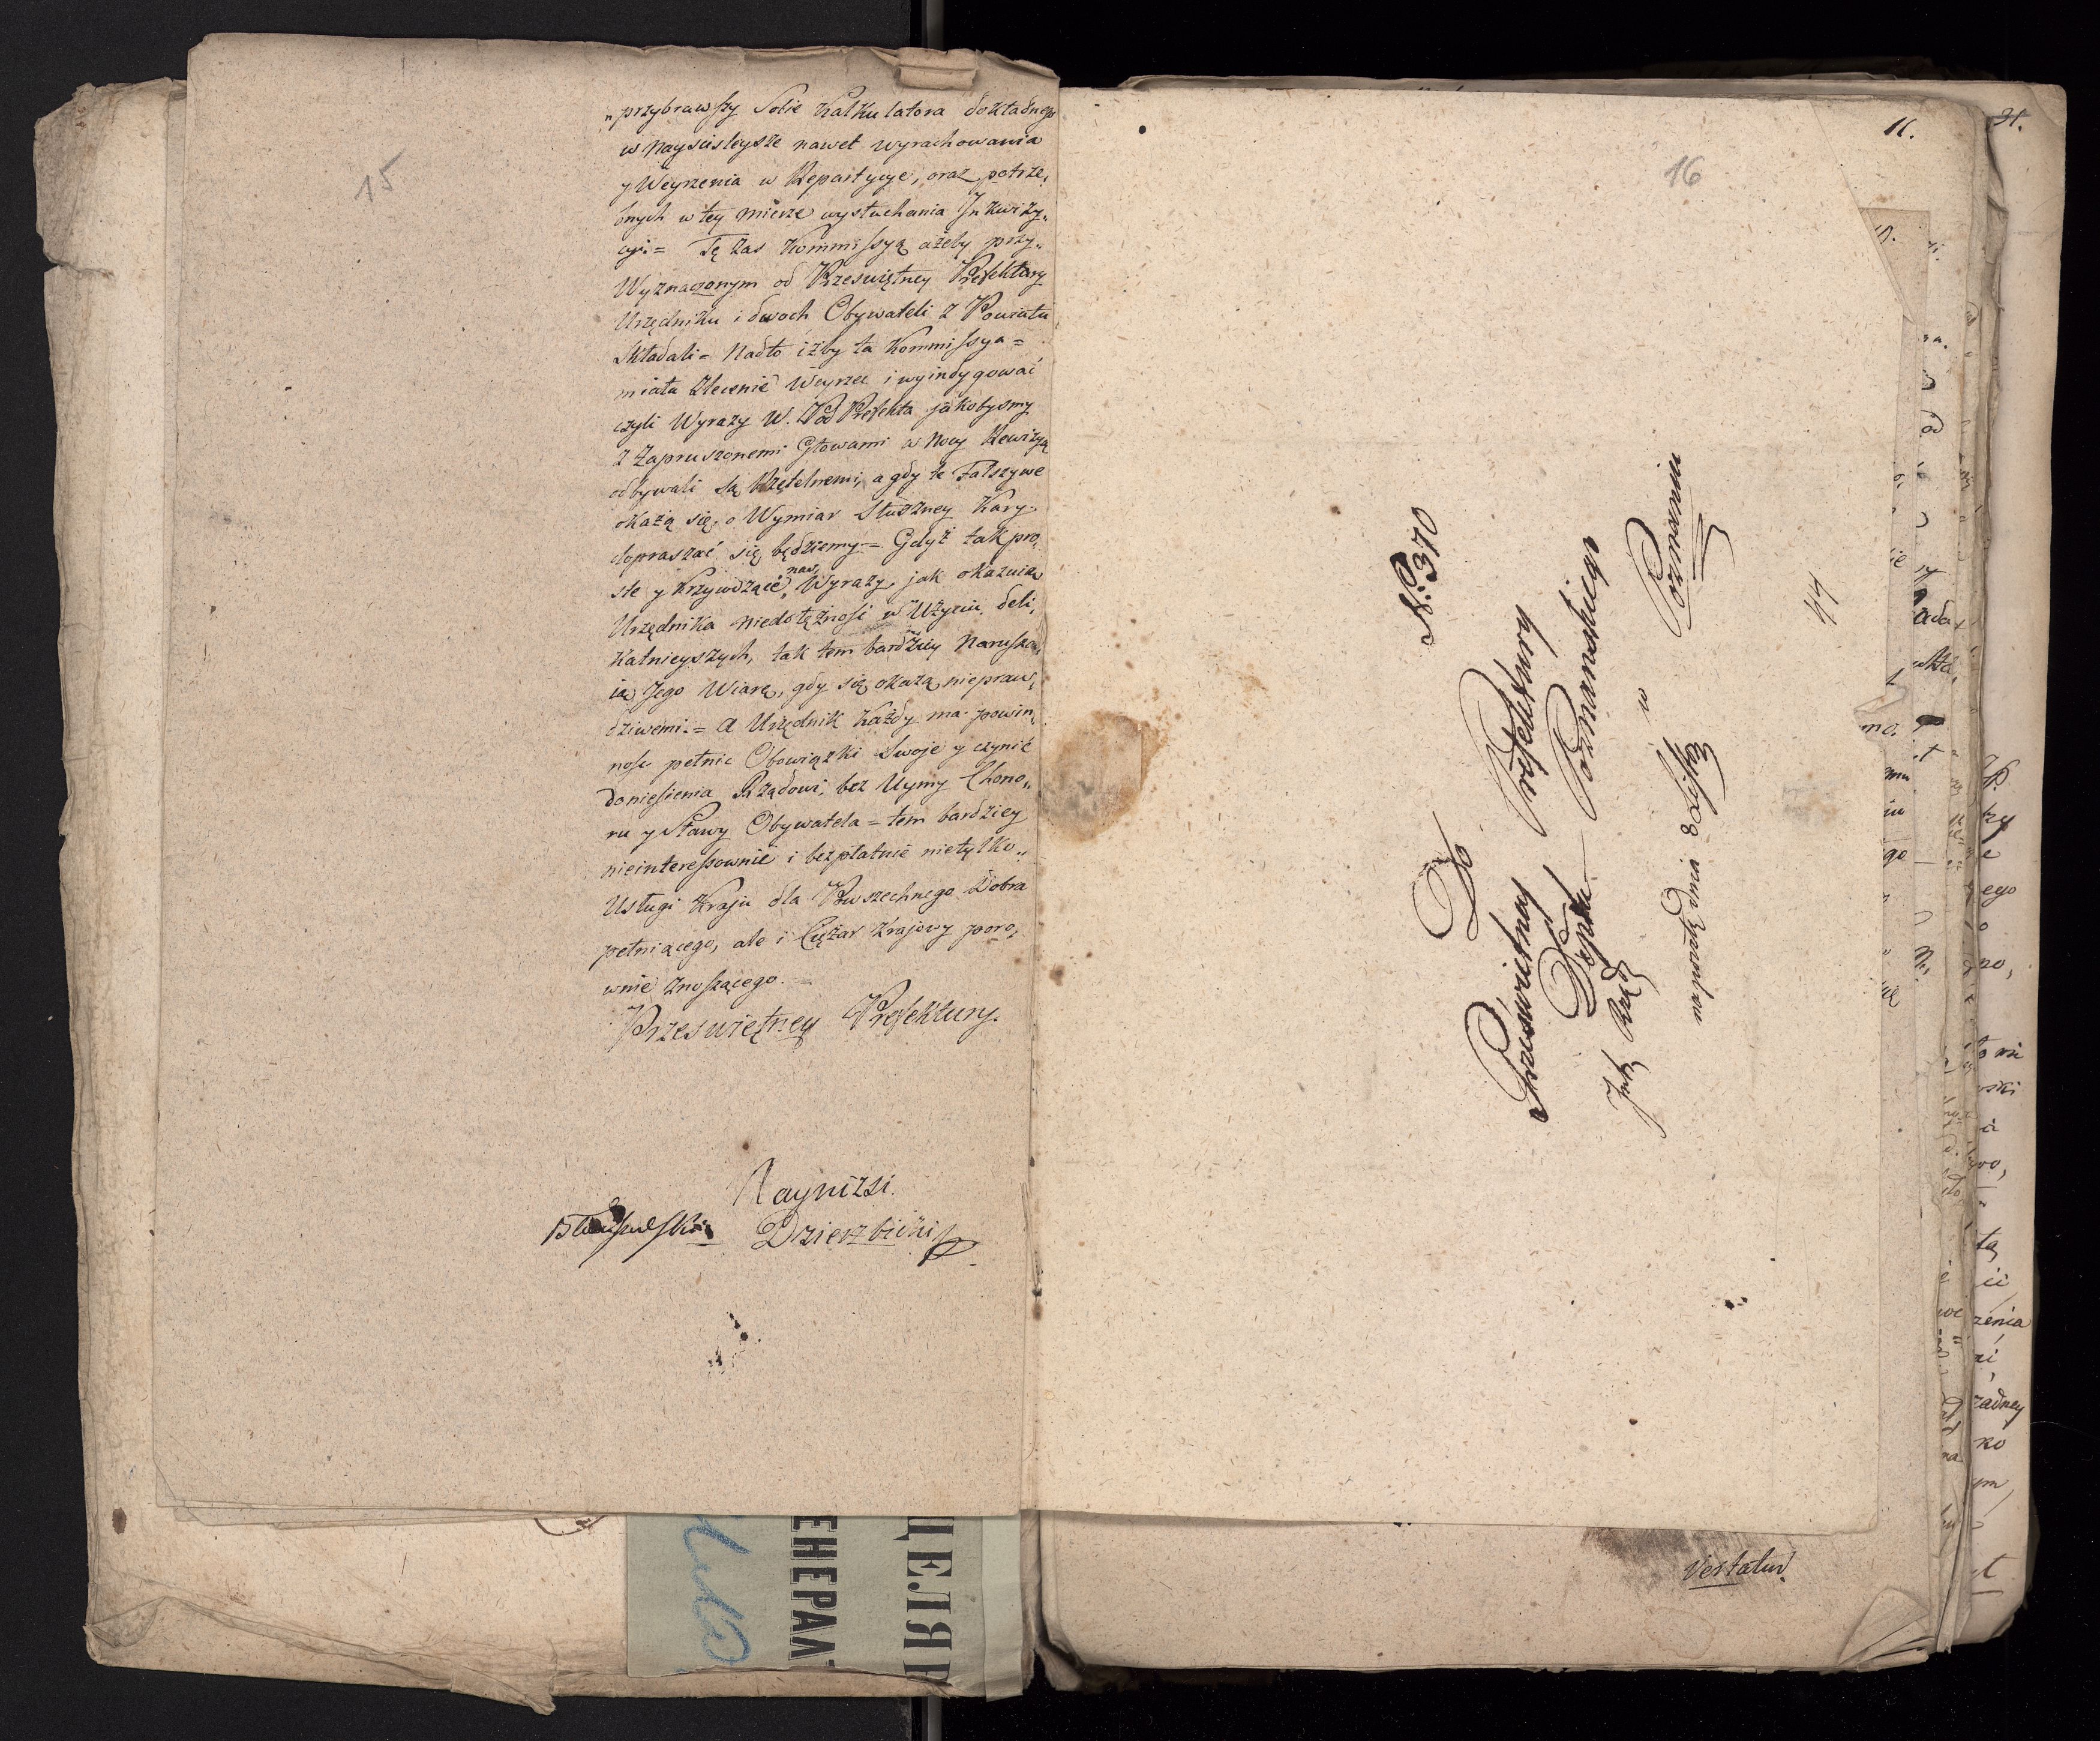 15
„przybrawszy Sobie Kalkulatora dokładnego
w Nayscisleysze nawet wyrachowania
y Weyrzenia w Repartycye, oraz potrze„
bnych w tey mierze wysłuchania Inkwizy„
cyi = Tę zas Kommissyą ażeby przy„
Wyznaczonym od Przeswiętney Prefektury
Urzędniku i dwoch Obywateli z Powiatu
Składali = Nadto iżby ta Kommissya =
miała Zlecenie Weyrzec i wyindygować
czyli Wyrazy W. Pod Prefekta jakobysmy
z Zapruszonemi Głowami w Nocy Rewizyą
odbywali są Rzetelnemi, a gdy te Fałszywe
okażą się, o Wymiar Słuszney Kary.
dopraszać się będziemy = Gdyż tak pro„
ste y Krzywdzące nas Wyrazy, jak okazuią
Urzędnika niedołężnosi w Użyciu deli„
katnieyszych, tak tem bardziey Narusza„
ią Jego Wiarę, gdy się okażą niepraw„
dziwemi = a Urzędnik Każdy ma powin„
nosc pełnic Obowiązki Swoje y czynić
doniesienia Rządowi, bez Uymy Chono„
ru y Sławy Obywatela = tem bardziey
nieinteressownie i bezpłatnie nietylko„
Usługi Kraju dla Powszechnego Dobra
pełniącego, ale i Ciężar Krajowy poro„
wnie Znoszącego. =
Przeswiętney Prefektury.
Naynizsi.
Dzierzbicki
11.
16
31.
No. 370
Do
Prześwietney Prefektury
Deptu Poznanskiego
w Poznaniu
na pocztę dnia 8 Listp
47
Vertatur.
ЦЕЛЯР
ЕНЕРАЛ